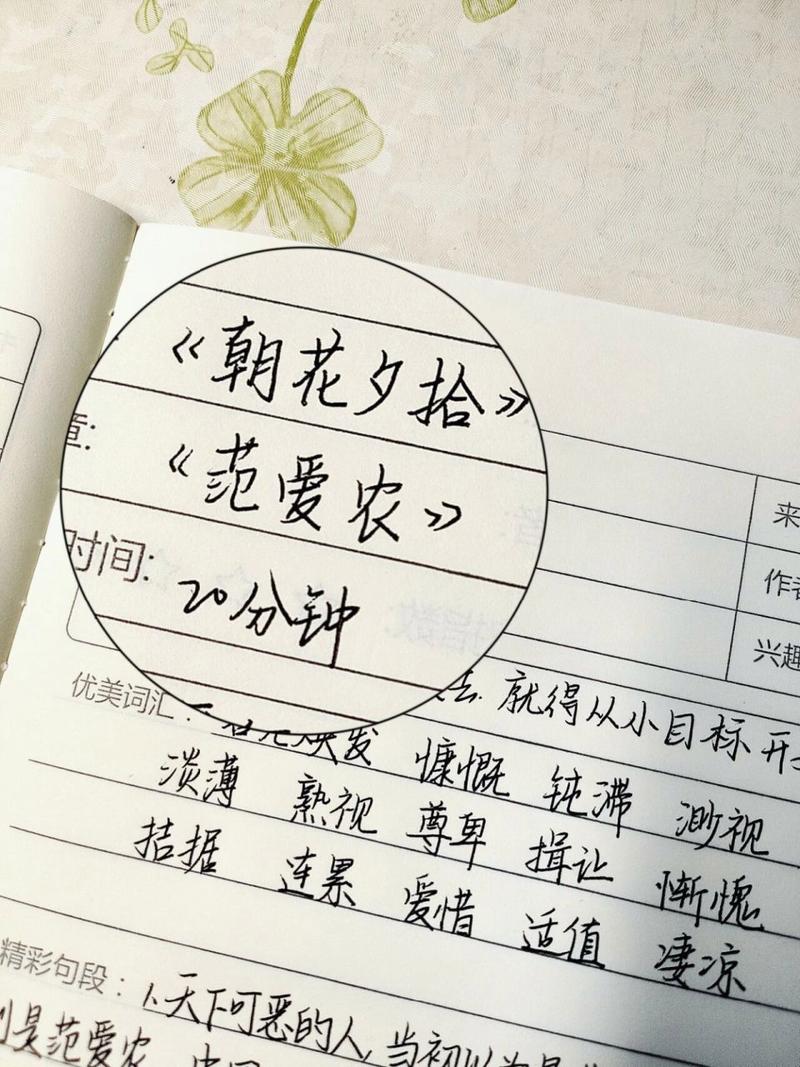 《朝花夕拾》
章:
《范爱农》
时间: 20分钟
来
作者
兴趣
就得从小目标开
优美词汇: 焕发 慷慨 钝滞 渺视
淡薄 熟视 尊卑 揖让 惭愧
拮据 连累 爱惜 适值 凄凉
精彩句段: 1.天下可恶的人,当初以为是
则是范爱农 中国